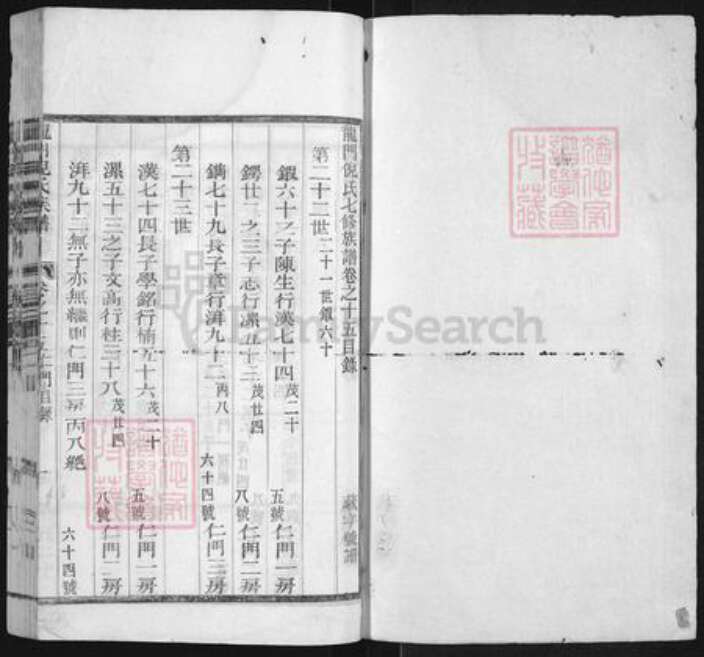 龍門倪氏七修族譜卷之十五目錄
第二十二世 二十一世鍜六十
鍜六十 子陳生行漢七十四 茂二十 五號 仁門一房
鍔廿 之三子志行漯五十三 茂廿四 八號 仁門二房
鏑七十九長子章行湃九十二 丙八 六十四號 仁門三房
第二十三世
漢七十四長子學銘行楠五十六 茂二十 五號 仁門一房
漯五十三之子文高行桂三十八 茂廿四 八號 仁門二房
湃九十二無子亦無繼則仁門三房丙八絕 六十四號
FamilySearch